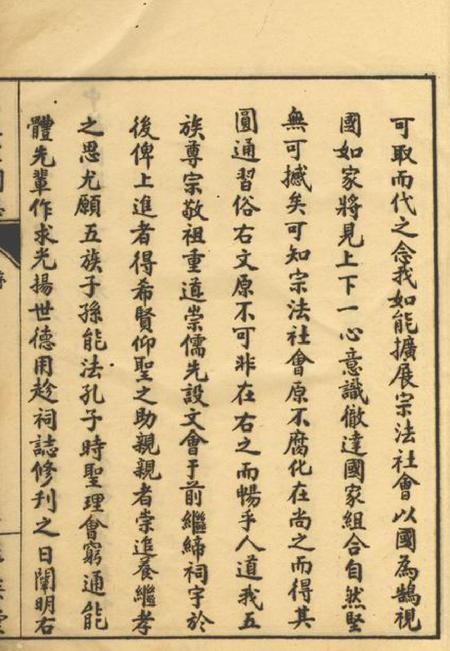 可取而代之念我如能擴展宗法社會以國為鵠視
國如家將見上下一心意識徹達國家組合自然堅
無可撼矣可知宗法社會原不腐化在尚之而得其
圓通習俗右文原不可非在右之而暢乎人道我五
族尊宗敬祖重道崇儒先設文會于前繼締祠宇於
後俾上進者得希賢仰聖之助親親者崇追養繼孝
之思尤願五族子孫能法孔子時聖理會窮通能
體先輩作求光揚世德用趁祠誌修刋之日闡明右